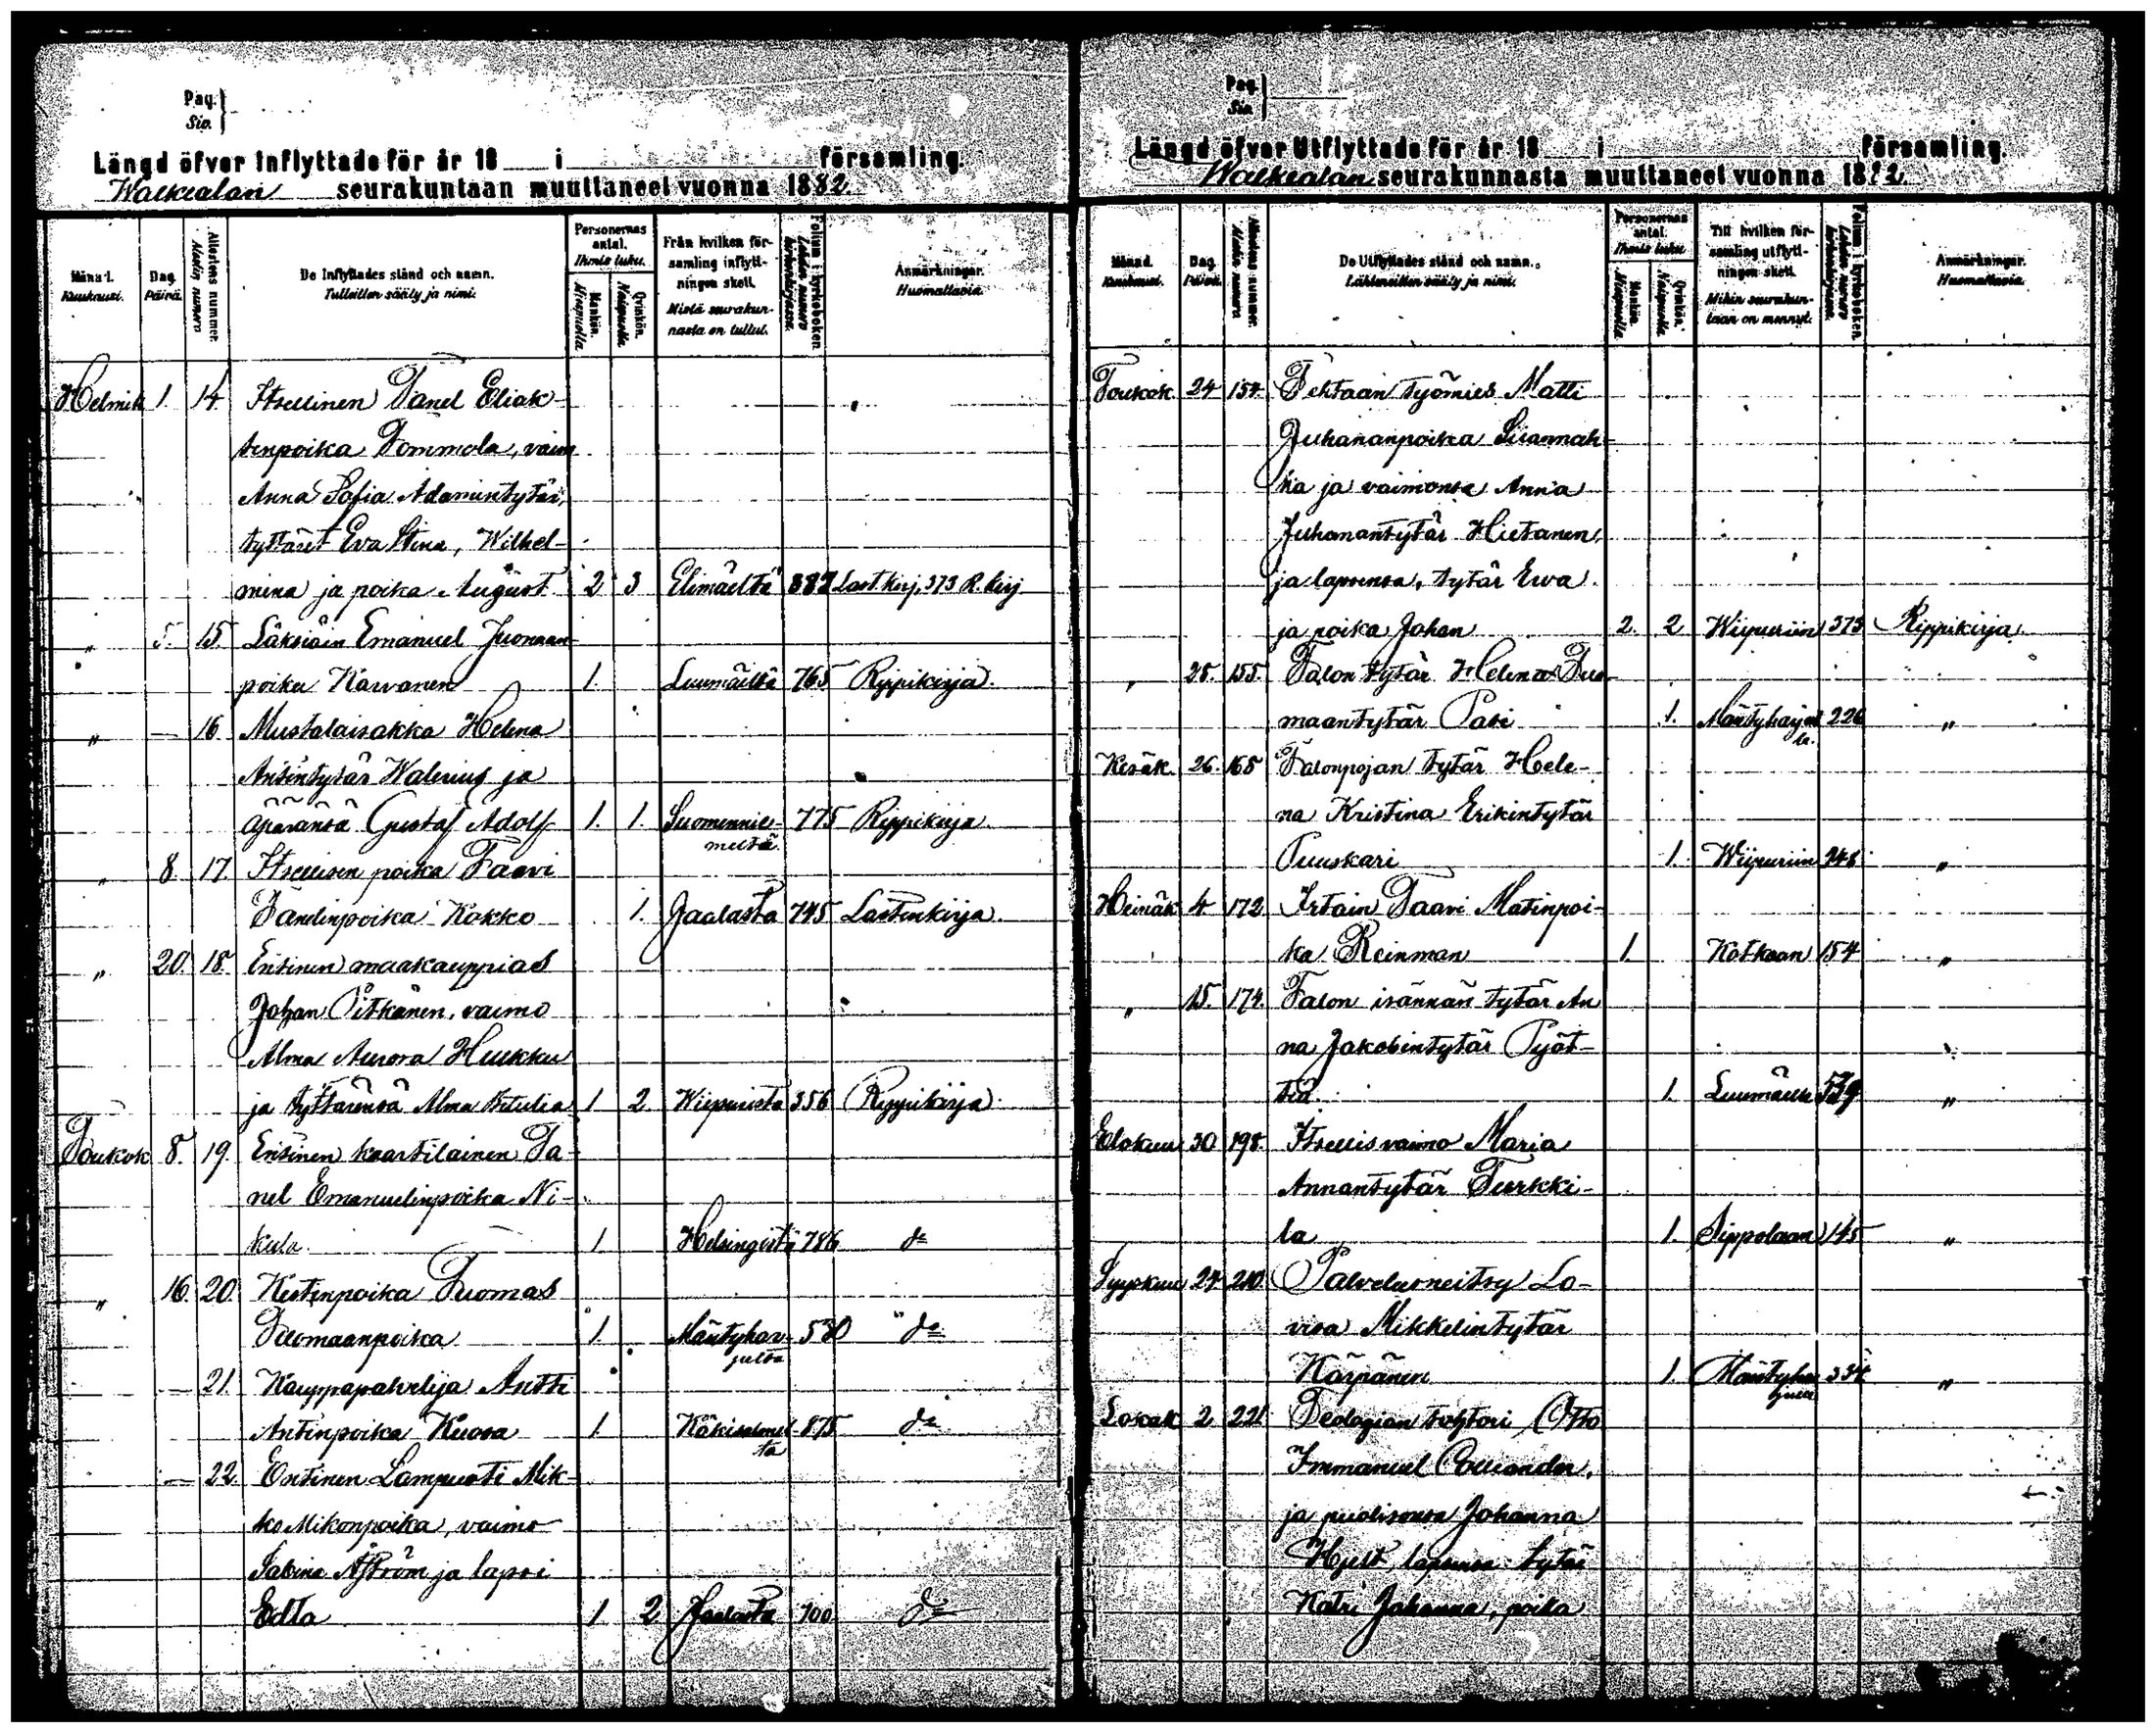 Pag.
Siv.
Längd öfver Inflyttade för år 18 i församling.
Walkealan seurakuntaan muuttaneet vuonna 1882.
Månad. Kuukausi.
Dag. Päivä.
Attestens nummer. Atestin numero
De Inflyttades stånd och namn.
Tulleitten sääty ja nimi.
Personernas antal.
Ihmis luku.
Mankön. Miespuolia
Qvinkön. Naispuolia
Från hvilken för-
samling inflytt-
ningen skett.
Mistä seurakun-
nasta on tullut.
Folium i kyrkoboken.
Lehden numero kirkonkirjassa.
Anmärkningar.
Huomattavia.
Helmik 1. 14. Itsellinen Tanel Eliak-
senpoika Tommola, vaim
Anna Sofia Adamintytär,
tyttäret Eva Stina, Wilhel-
mina ja poika August 2 3 Elimäeltä 387 Last. kirj. 373 R. kirj
" 5. 15. Läksiäin Emanuel Juonaan-
poika Karvanen 1. Luumäeltä 765 Rippikirja.
" — 16 Mustalaisakka Helena
Antintytär Walerius ja
äpäränsä Gustaf Adolf 1. 1. Suomennie- 775 Rippikirja.
meltä.
" 8. 17. Itsellisen poika Taavi
Tandinpoika Kokko 1. Jaalasta 745 Lastenkirja.
" 20. 18. Entinen maakauppias
Johan Pitkänen, vaimo
Alma Aurora Huukku
ja tyttärensä Alma 1 2 Wiipurista 356 Rippikirja.
Toukok 8. 19. Entinen kaartilainen Ta-
nel Emanuelinpoika Ni-
kula. 1 Helsingistä 786 do
" 16. 20. Kestinpoika Tuomas
Tuomaanpoika 1 Mäntyhar- 530 " do
julta
— 21. Kauppapalvelija Antti
Antinpoika Kuosa 1 Käkisalmel- 875 do
ta
— 22. Entinen Lampuoti Mik-
ko Mikonpoika, vaimo
Sabina Åström ja lapsi
Edla 1 2 Jaalasta 700 do
Pag.
Siv.
Längd öfver Utflyttade för år 18 i församling.
Walkealan seurakunnasta muuttaneet vuonna 1882.
Månad. Kuukausi.
Dag. Päivä.
Attestens nummer. Atestin numero
De Utflyttades stånd och namn.
Lähteneitten sääty ja nimi.
Personernas antal.
Ihmis luku.
Mankön. Miespuolia
Qvinkön. Naispuolia
Till hvilken för-
samling utflytt-
ningen skett.
Mihin seurakun-
taan on mennyt.
Folium i kyrkoboken.
Lehden numero kirkonkirjassa.
Anmärkningar.
Huomattavia.
Toukok. 24 154. Tehtaan työmies Matti
Juhananpoika Suannah-
ka ja vaimonsa Anna
Juhanantytär Hietanen,
ja lapsensa, tytär Ewa
ja poika Johan 2. 2 Wiipuriin 373 Rippikirja.
" 25. 155. Talon tytär Helena Tuo-
maantytär Pasi 1. Mäntyharjul 226 "
le.
Kesäk. 26. 168 Talonpojan tytär Hele-
na Kristina Erikintytär
Puuskari 1. Wiipuriin 248 "
Heinäk 4 172 Irtain Taavi Matinpoi-
ka Reinman 1. Kotkaan 154 "
" 15. 174. Talon isännän tytär An
na Jakobintytär Pyöt-
siä. 1. Luumäelle 539 "
Elokuu 30 198. Itsellis vaimo Maria
Annantytär Turkki-
la 1. Sippolaan 145 "
Syyskuu 24 210. Palvelusneitsy Lo-
visa Mikkelintytär
Kärpänen 1. Mäntyhar 334 "
julle
Lokak 2 221 Teologian tohtori Otto
Immanuel Colliander,
ja puolisonsa Johanna
Hjelt, lapsensa: tytär
Katri Johanna, poika